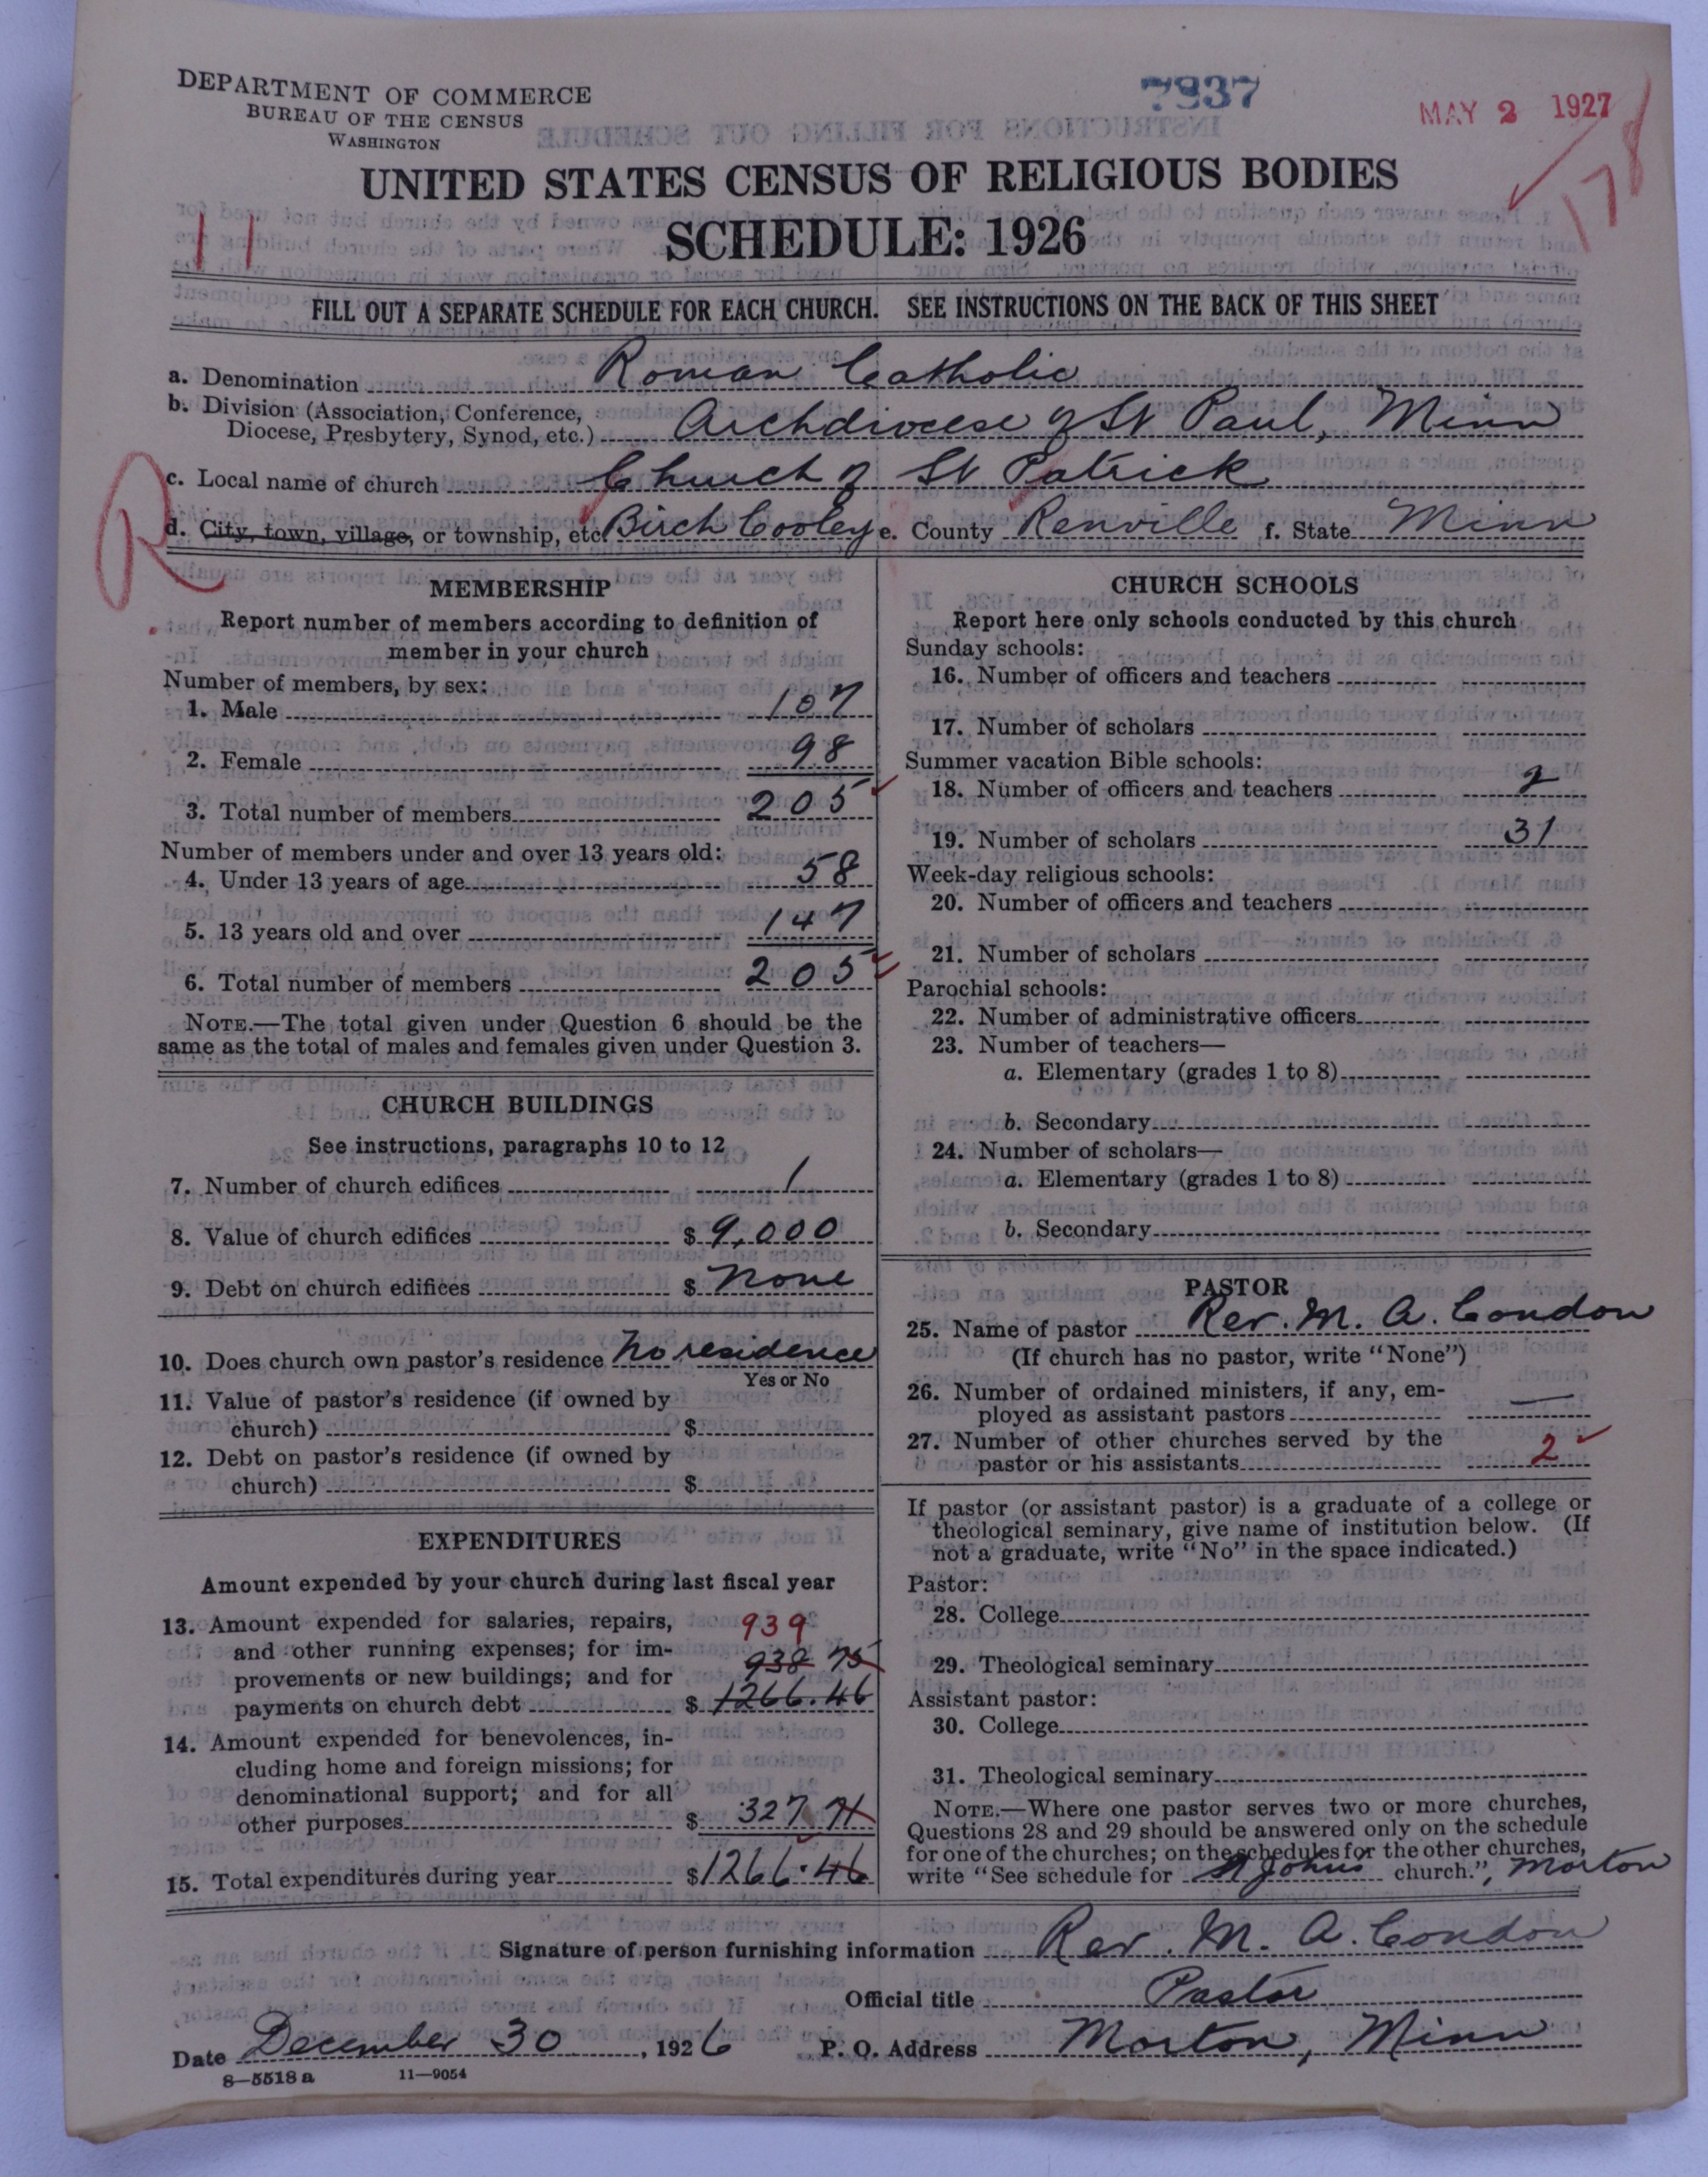 DEPARTMENT OF COMMERCE
BUREAU OF THE CENSUS
WASHINGTON
7837
MAY 2 1927
178
UNITED STATES CENSUS OF RELIGIOUS BODIES
SCHEDULE: 1926
11
FILL OUT A SEPARATE SCHEDULE FOR EACH CHURCH. SEE INSTRUCTIONS ON THE BACK OF THIS SHEET
a. Denomination Roman Catholic
b. Division (Association, Conference, Diocese, Presbytery, Synod, etc.) Archdiocese of St Paul, Minn
c. Local name of church Church of St Patrick
R
d. City, town, village, or township, etc. Birch Cooley e. County Renville f. State Minn
MEMBERSHIP
Report number of members according to definition of
member in your church
Number of members, by sex:
1. Male 107
2. Female 98
3. Total number of members 205
Number of members under and over 13 years old:
4. Under 13 years of age 58
5. 13 years old and over 147
6. Total number of members 205
NOTE.—The total given under Question 6 should be the
same as the total of males and females given under Question 3.
CHURCH BUILDINGS
See instructions, paragraphs 10 to 12
7. Number of church edifices 1
8. Value of church edifices $ 9,000
9. Debt on church edifices $ None
10. Does church own pastor's residence No residence
Yes or No
11. Value of pastor's residence (if owned by
church) $
12. Debt on pastor's residence (if owned by
church) $
EXPENDITURES
Amount expended by your church during last fiscal year
13. Amount expended for salaries, repairs, 939
and other running expenses; for im- 938 75
provements or new buildings; and for
payments on church debt $ 1266.46
14. Amount expended for benevolences, in-
cluding home and foreign missions; for
denominational support; and for all
other purposes $ 327 71
15. Total expenditures during year $ 1266.46
CHURCH SCHOOLS
Report here only schools conducted by this church
Sunday schools:
16. Number of officers and teachers
17. Number of scholars
Summer vacation Bible schools:
18. Number of officers and teachers 2
19. Number of scholars 31
Week-day religious schools:
20. Number of officers and teachers
21. Number of scholars
Parochial schools:
22. Number of administrative officers
23. Number of teachers—
a. Elementary (grades 1 to 8)
b. Secondary
24. Number of scholars—
a. Elementary (grades 1 to 8)
b. Secondary
PASTOR
25. Name of pastor Rev. M. A. Condon
(If church has no pastor, write "None")
26. Number of ordained ministers, if any, em-
ployed as assistant pastors —
27. Number of other churches served by the
pastor or his assistants 2
If pastor (or assistant pastor) is a graduate of a college or
theological seminary, give name of institution below. (If
not a graduate, write "No" in the space indicated.)
Pastor:
28. College
29. Theological seminary
Assistant pastor:
30. College
31. Theological seminary
NOTE.—Where one pastor serves two or more churches,
Questions 28 and 29 should be answered only on the schedule
for one of the churches; on the schedules for the other churches,
write "See schedule for St Johns church.", Morton
Signature of person furnishing information Rev. M. A. Condon
Official title Pastor
Date December 30, 1926 P. O. Address Morton, Minn
8—5518 a 11—9054